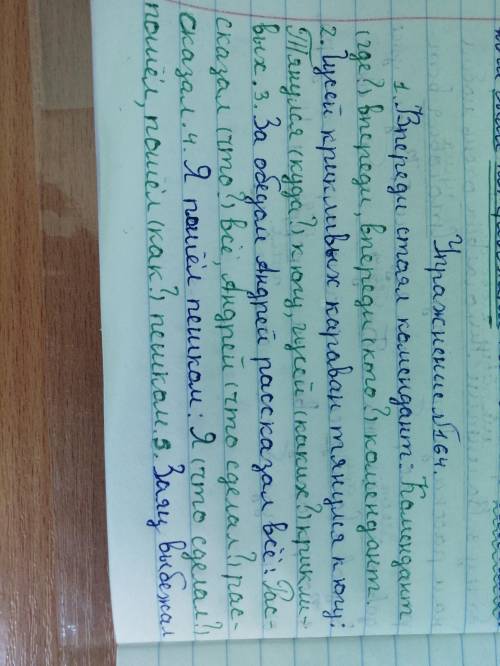 Упражнение №164.
1. Впереди стоял комендант: Комендант
(где?) впереди, впереди (кто?) комендант.
2. Гусей крикливых караван тянулся к югу:
Тянулся (куда?) к югу, гусей (каких?) крикли-
вых. 3. За обедом Андрей рассказал всё: Рас-
сказал (что?) всё, Андрей (что сделал?) рас-
сказал. 4. Я пошёл пешком: Я (что сделал?)
пошёл, пошёл (как?) пешком. 5. Заяц выбежал